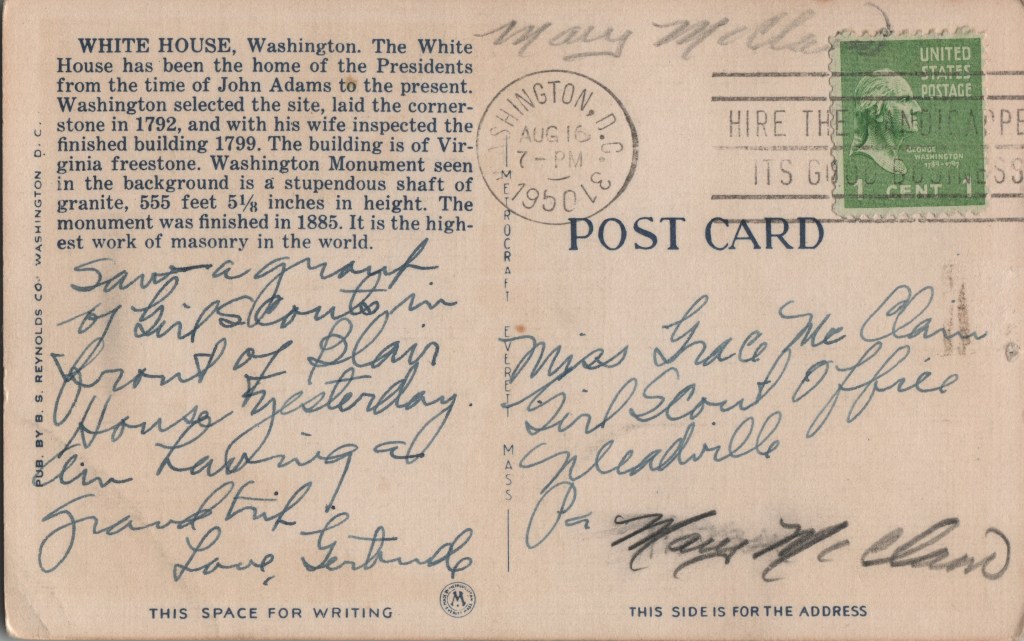 WHITE HOUSE, Washington. The White
House has been the home of the Presidents
from the time of John Adams to the present.
Washington selected the site, laid the corner-
stone in 1792, and with his wife inspected the
finished building 1799. The building is of Vir-
ginia freestone. Washington Monument seen
in the background is a stupendous shaft of
granite, 555 feet 5⅛ inches in height. The
monument was finished in 1885. It is the high-
est work of masonry in the world.
Saw a group
of Girl Scouts in
front of Blair
House yesterday.
am having a
grand trip.
Love, Gertrude
THIS SPACE FOR WRITING
PUB. BY B. S. REYNOLDS CO. WASHINGTON D. C.
METROCRAFT EVERETT MASS
W
Mary McClain
WASHINGTON, D.C. 13
AUG 16
7-PM
1950
HIRE THE HANDICAPPE
ITS GOOD BUSINESS
UNITED
STATES
POSTAGE
GEORGE
WASHINGTON
1 CENT 1
POST CARD
Miss Grace Mc Clain
Girl Scout Office
Meadville
Pa
Mary Mc Clain
THIS SIDE IS FOR THE ADDRESS